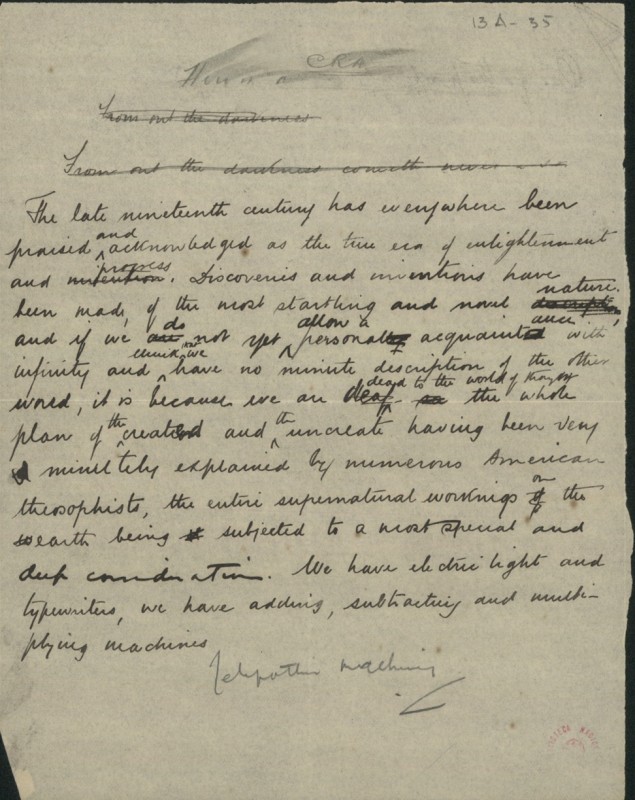 13A - 35
CRA
From out the darkness
From out the darkness cometh
The late nineteenth century has everywhere been
praised and acknowledged as the true era of enlightenment
and invention progress. Discoveries and inventions have
been made, of the most startling and novel description nature.
and if we are do not yet allow a personally acquaintance with
infinity and think we have no minute description of the other
world, it is because we are deaf dead to the world of thought the whole
plan of the created and the uncreate having been very
minutely explained by numerous American
theosophists, the entire supernatural workings of on the
earth being subjected to a most special and
deep consideration. We have electric light and
typewriters, we have adding, subtracting and multi-
plying machines
Telepathic machines